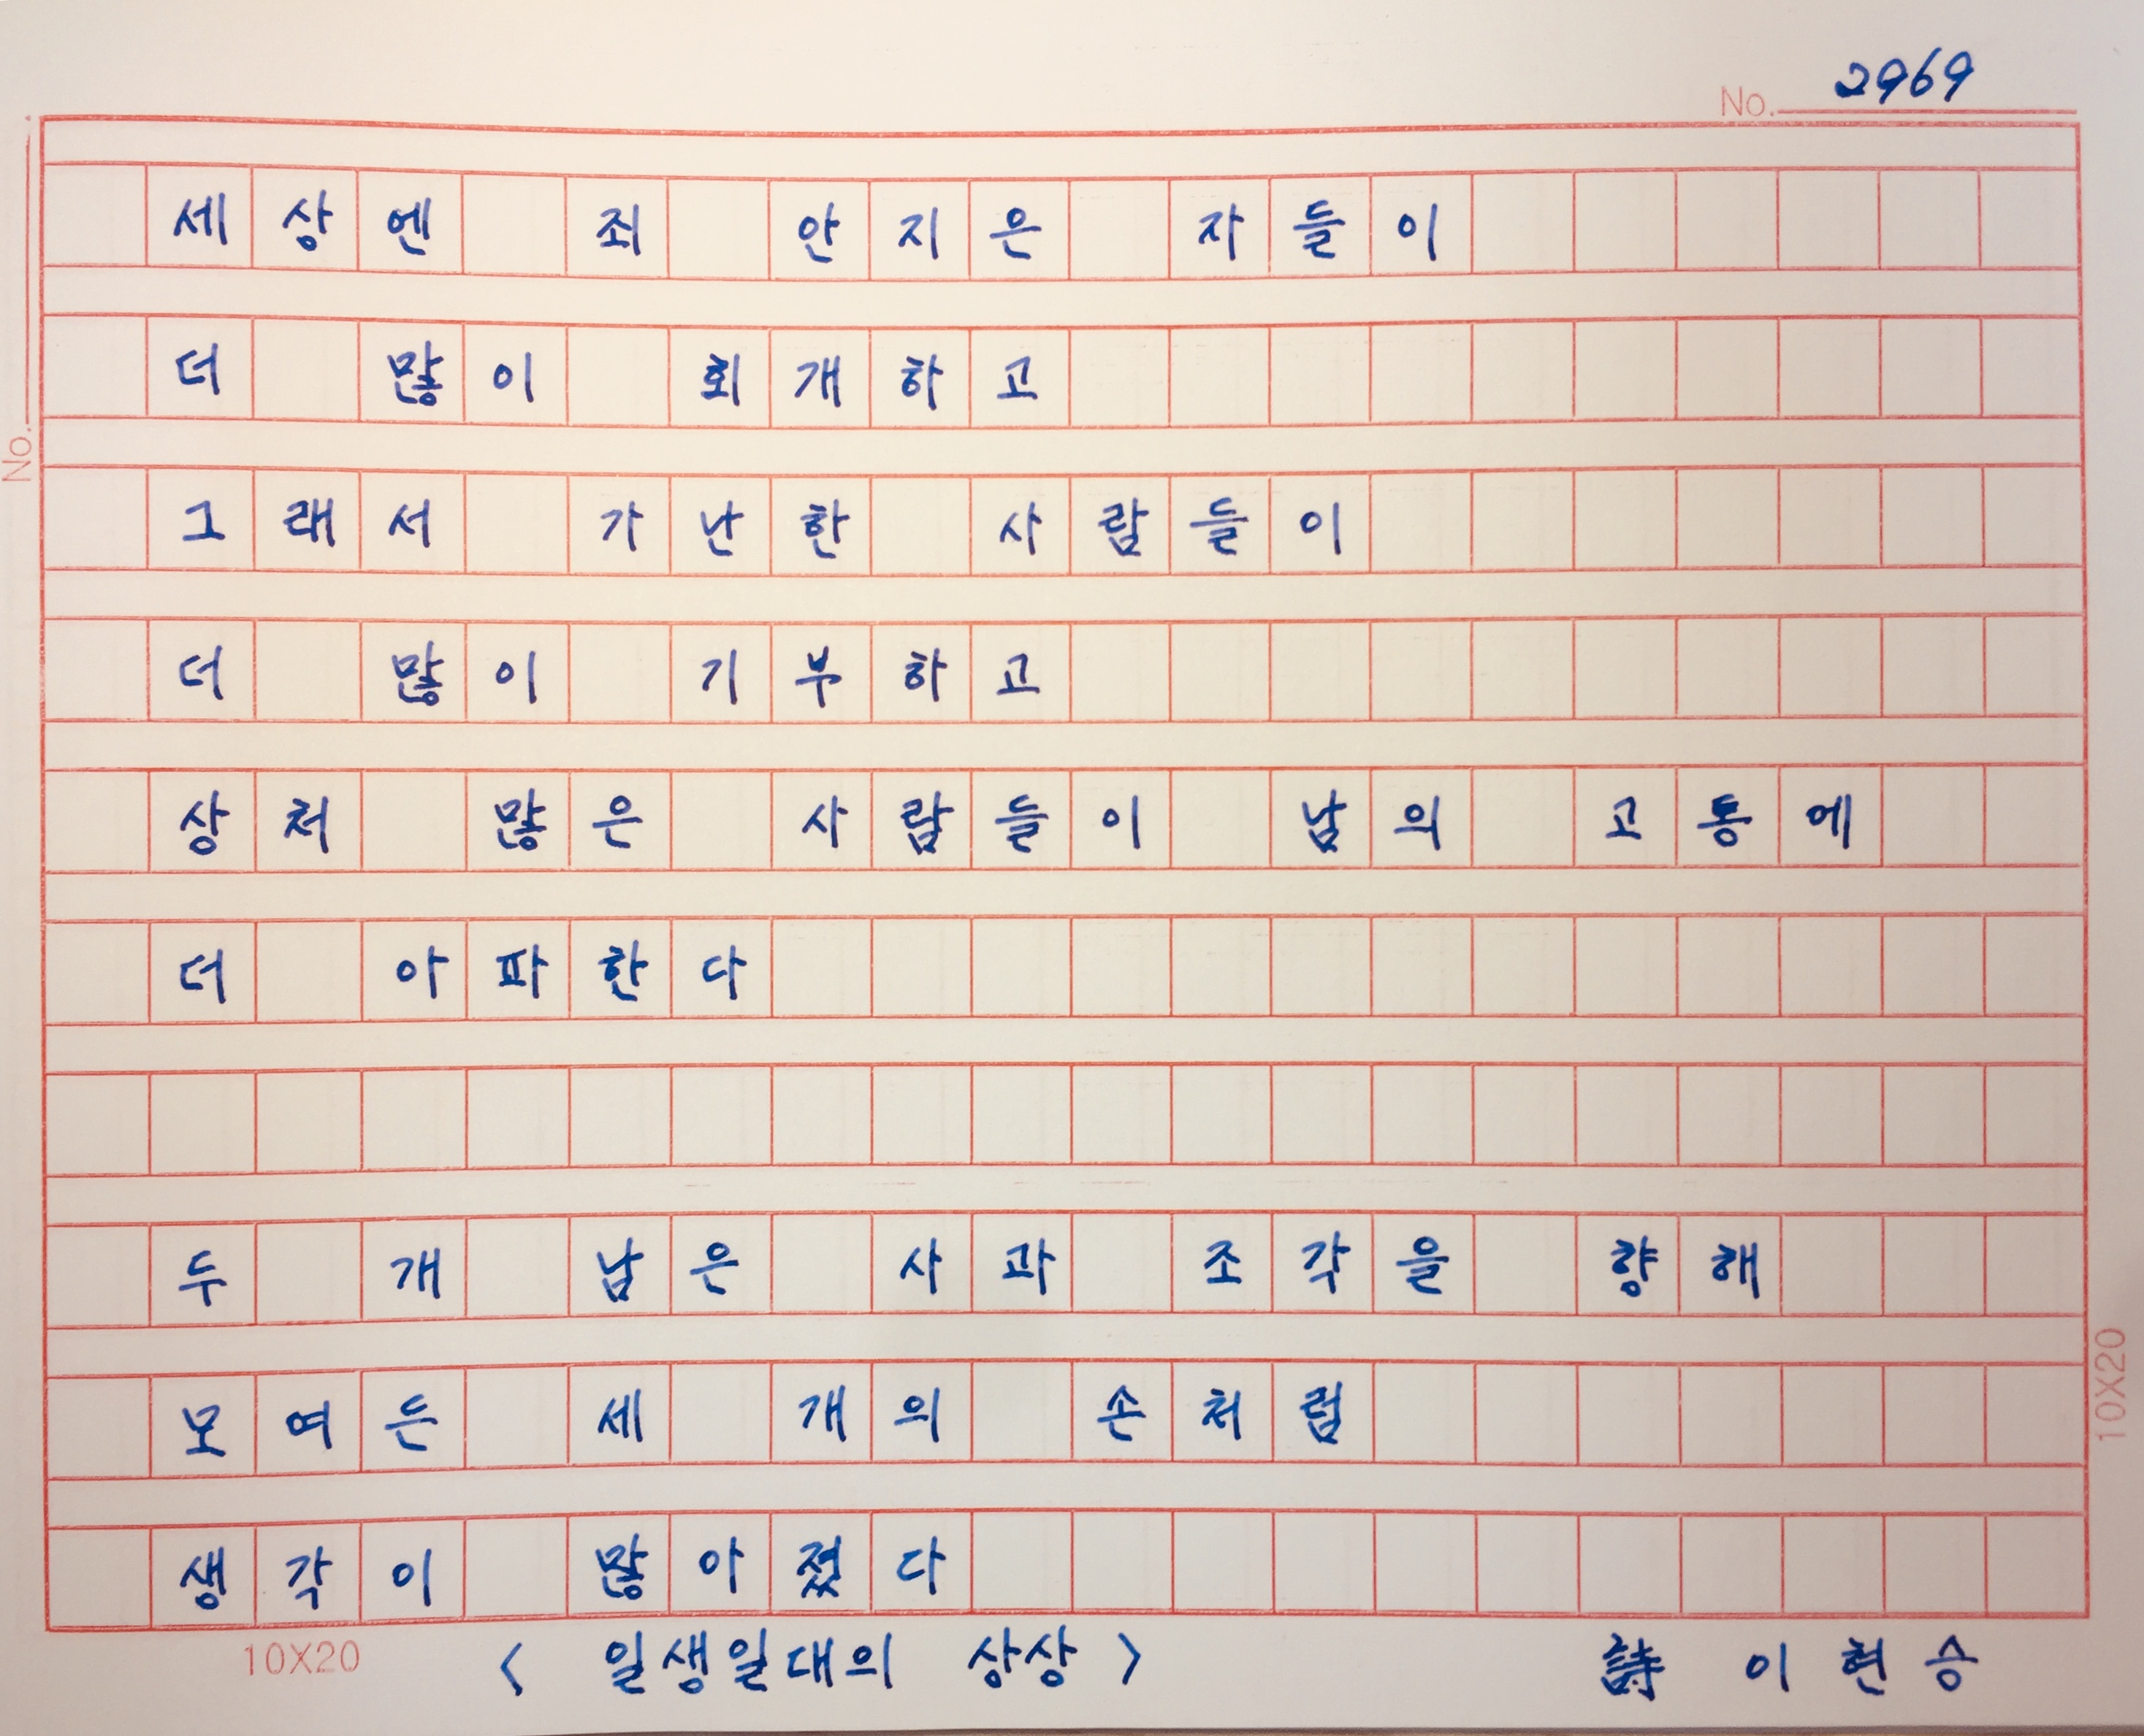 No. 2969
세상엔 죄 안지은 자들이
더 많이 회개하고
그래서 가난한 사람들이
더 많이 기부하고
상처 많은 사람들이 남의 고통에
더 아파한다
두 개 남은 사과 조각을 향해
모여든 세 개의 손처럼
생각이 많아졌다
10X20 < 일생일대의 상상 > 詩 이현승
No.
10X20